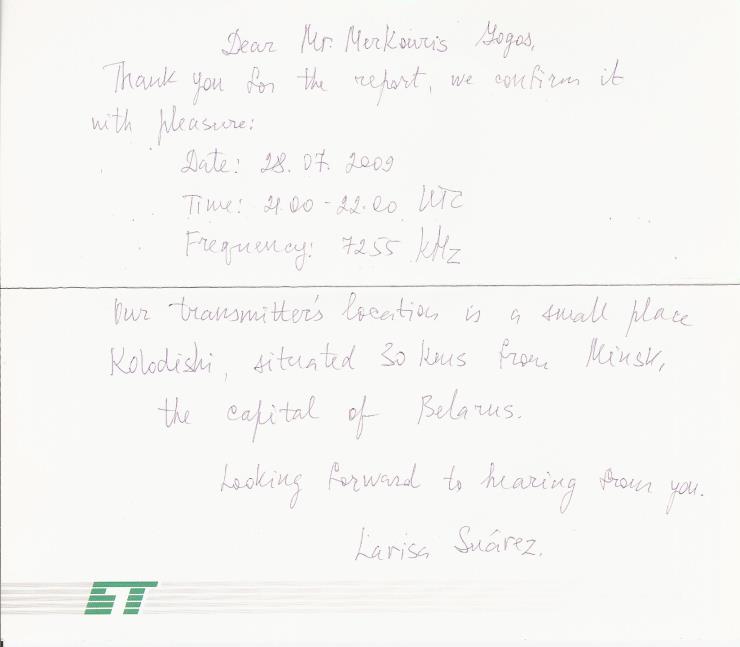 Dear Mr. Merkouris Gogos,
Thank you for the report, we confirm it
with pleasure:
Date: 28.07.2009
Time: 21.00-22.00 UTC
Frequency: 7255 kHz
Our transmitter's location is a small place
Kolodishi, situated 30 kms from Minsk,
the capital of Belarus.
Looking forward to hearing from you.
Larisa Suárez.